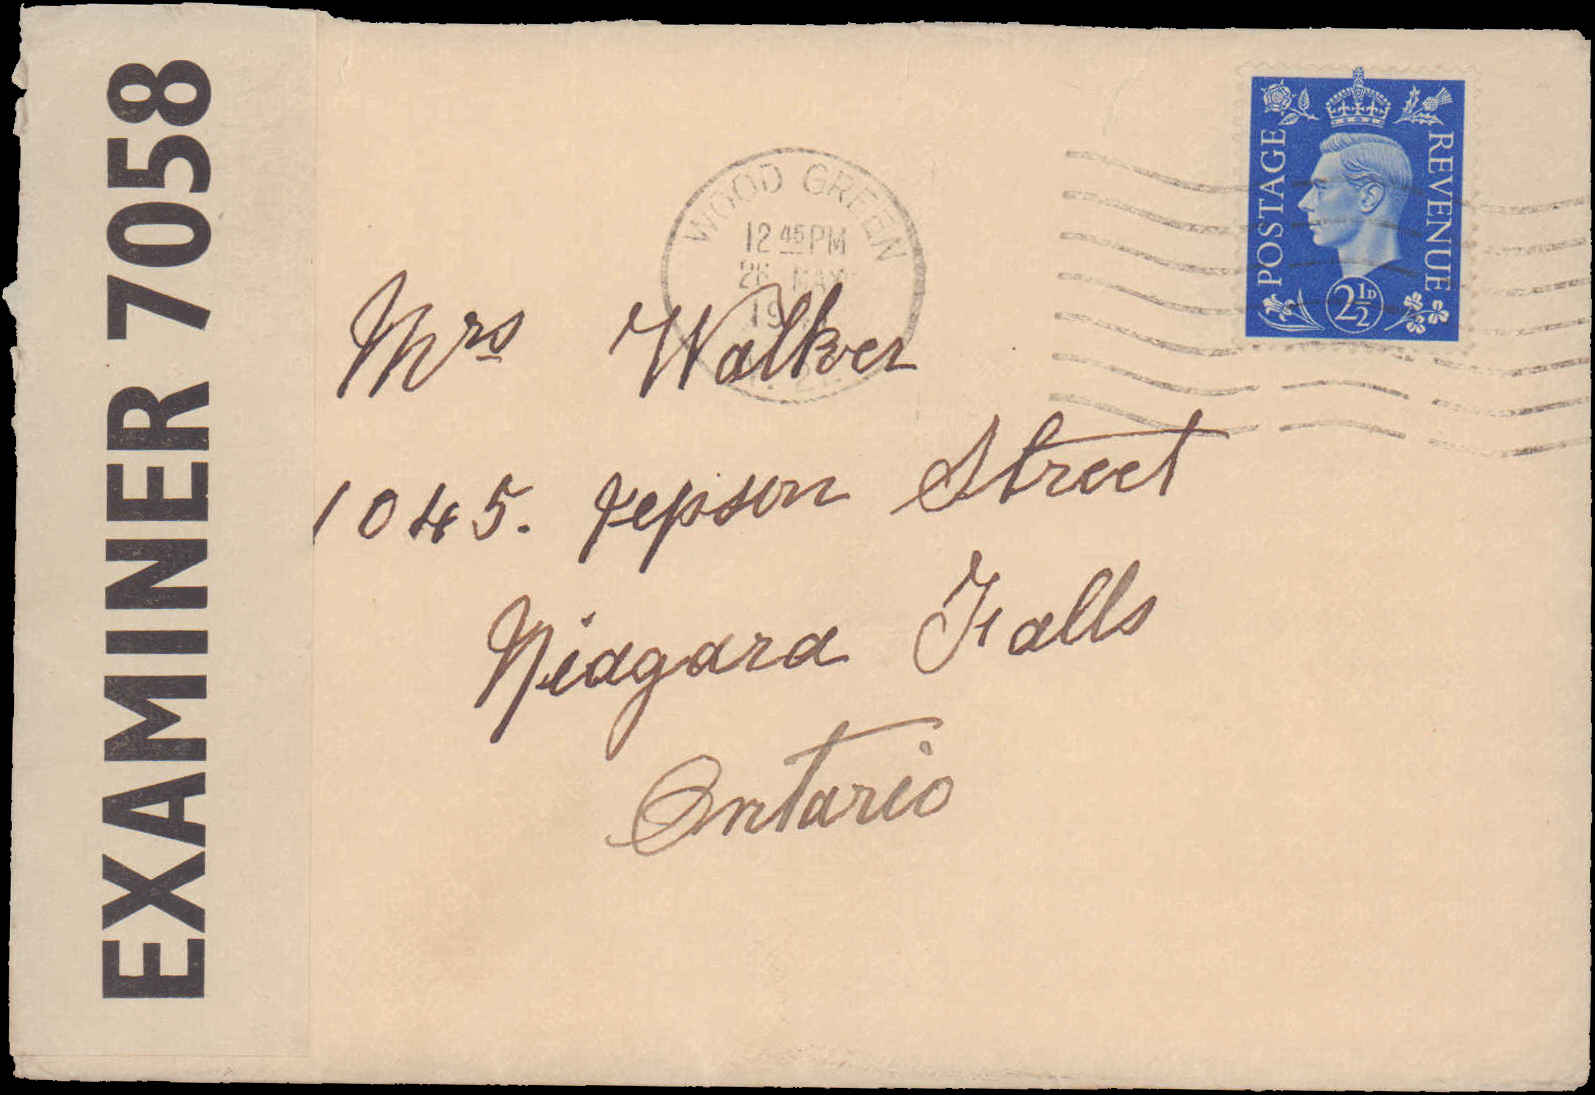 EXAMINER 7058
WOOD GREEN
12 45 PM
MAY
POSTAGE
REVENUE
2½D
Mrs Walker
1045. Jepson Street
Niagara Falls
Ontario